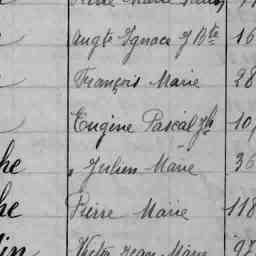 Pierre Marie
Augte Ignace J Bte 16
François Marie 28
Eugène Pascal Jh 10,
he Julien Marie 36
he Pierre Marie 118
in Victor Jean Marie 97